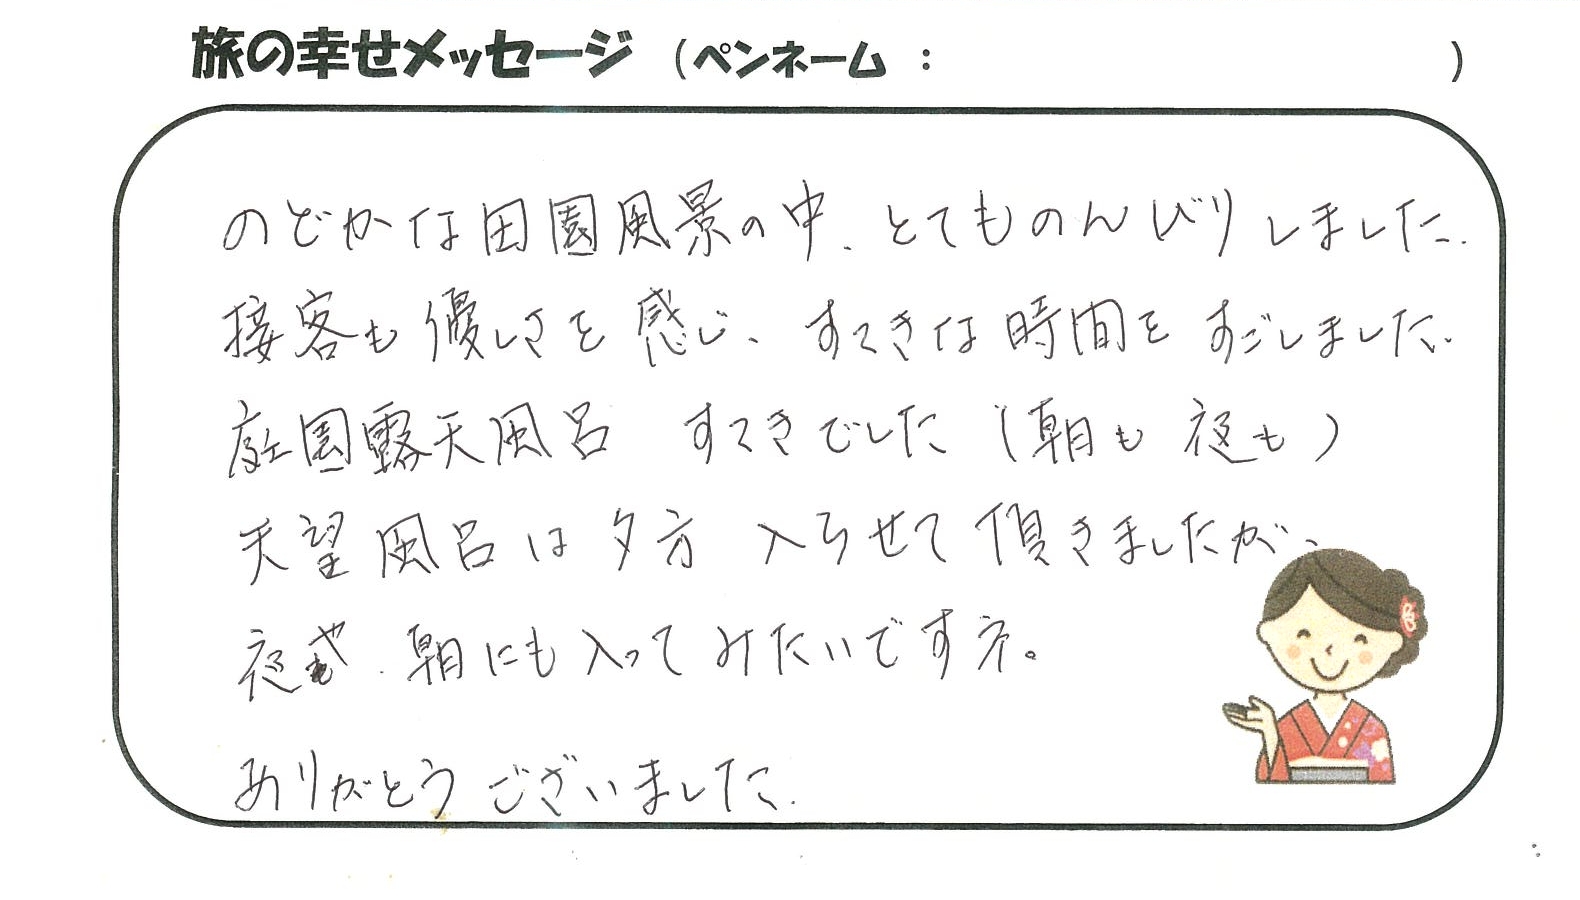 旅の幸せメッセージ (ペンネーム : )
のどかな田園風景の中、とてものんびりしました.
接客も優しさを感じ、すてきな時間をすごしました.
庭園露天風呂 すてきでした (朝も夜も)
天望風呂は夕方 入らせて頂きましたが、
夜や、朝にも入ってみたいですネ。
ありがとうございました.